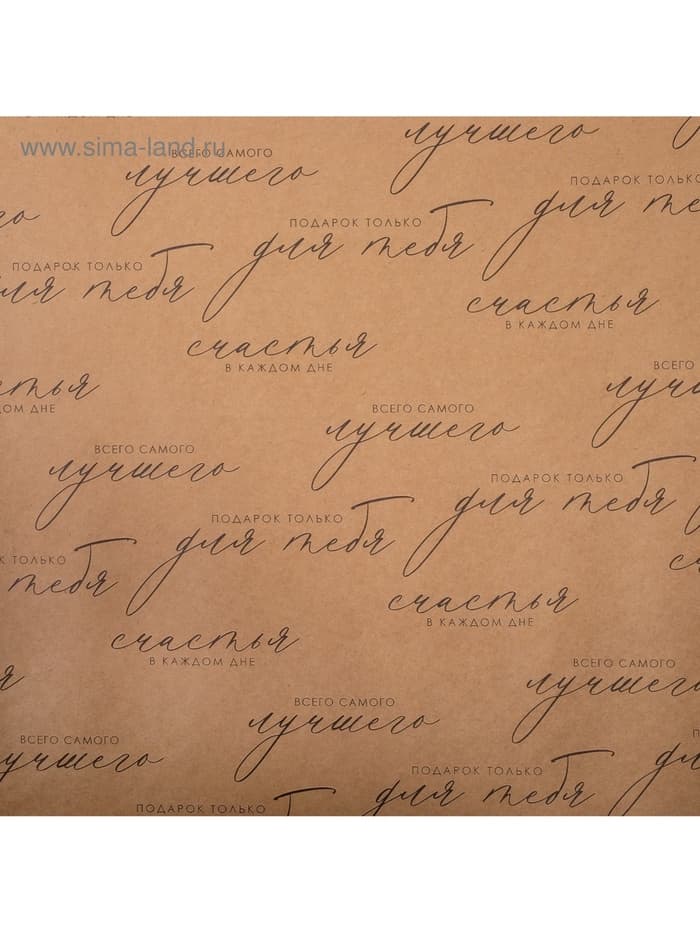 www.sima-land.ru
лучшего
ВСЕГО САМОГО
лучшего
ПОДАРОК ТОЛЬКО
для те
ПОДАРОК ТОЛЬКО
для тебя
го
ПОДАРОК ТОЛЬКО
для тебя
счастья
В КАЖДОМ ДНЕ
счастья
В КАЖДОМ ДНЕ
стья
ОМ ДНЕ
ВСЕГО
лучш
ВСЕГО САМОГО
лучшего
ВСЕГО САМОГО
лучшего
ПОДАРОК ТОЛЬКО
для тебя
ПОДАРОК ТОЛЬКО
для тебя
К ТОЛЬКО
тебя
сч
счастья
В КАЖДОМ ДНЕ
счастья
В КАЖДОМ ДНЕ
ВСЕГО САМОГО
лучшего
я
ВСЕГО САМОГО
лучшего
ВСЕГО САМОГО
лучшего
П
дл
ПОДАРОК ТОЛЬКО
для тебя
ПОДАРОК ТОЛЬКО